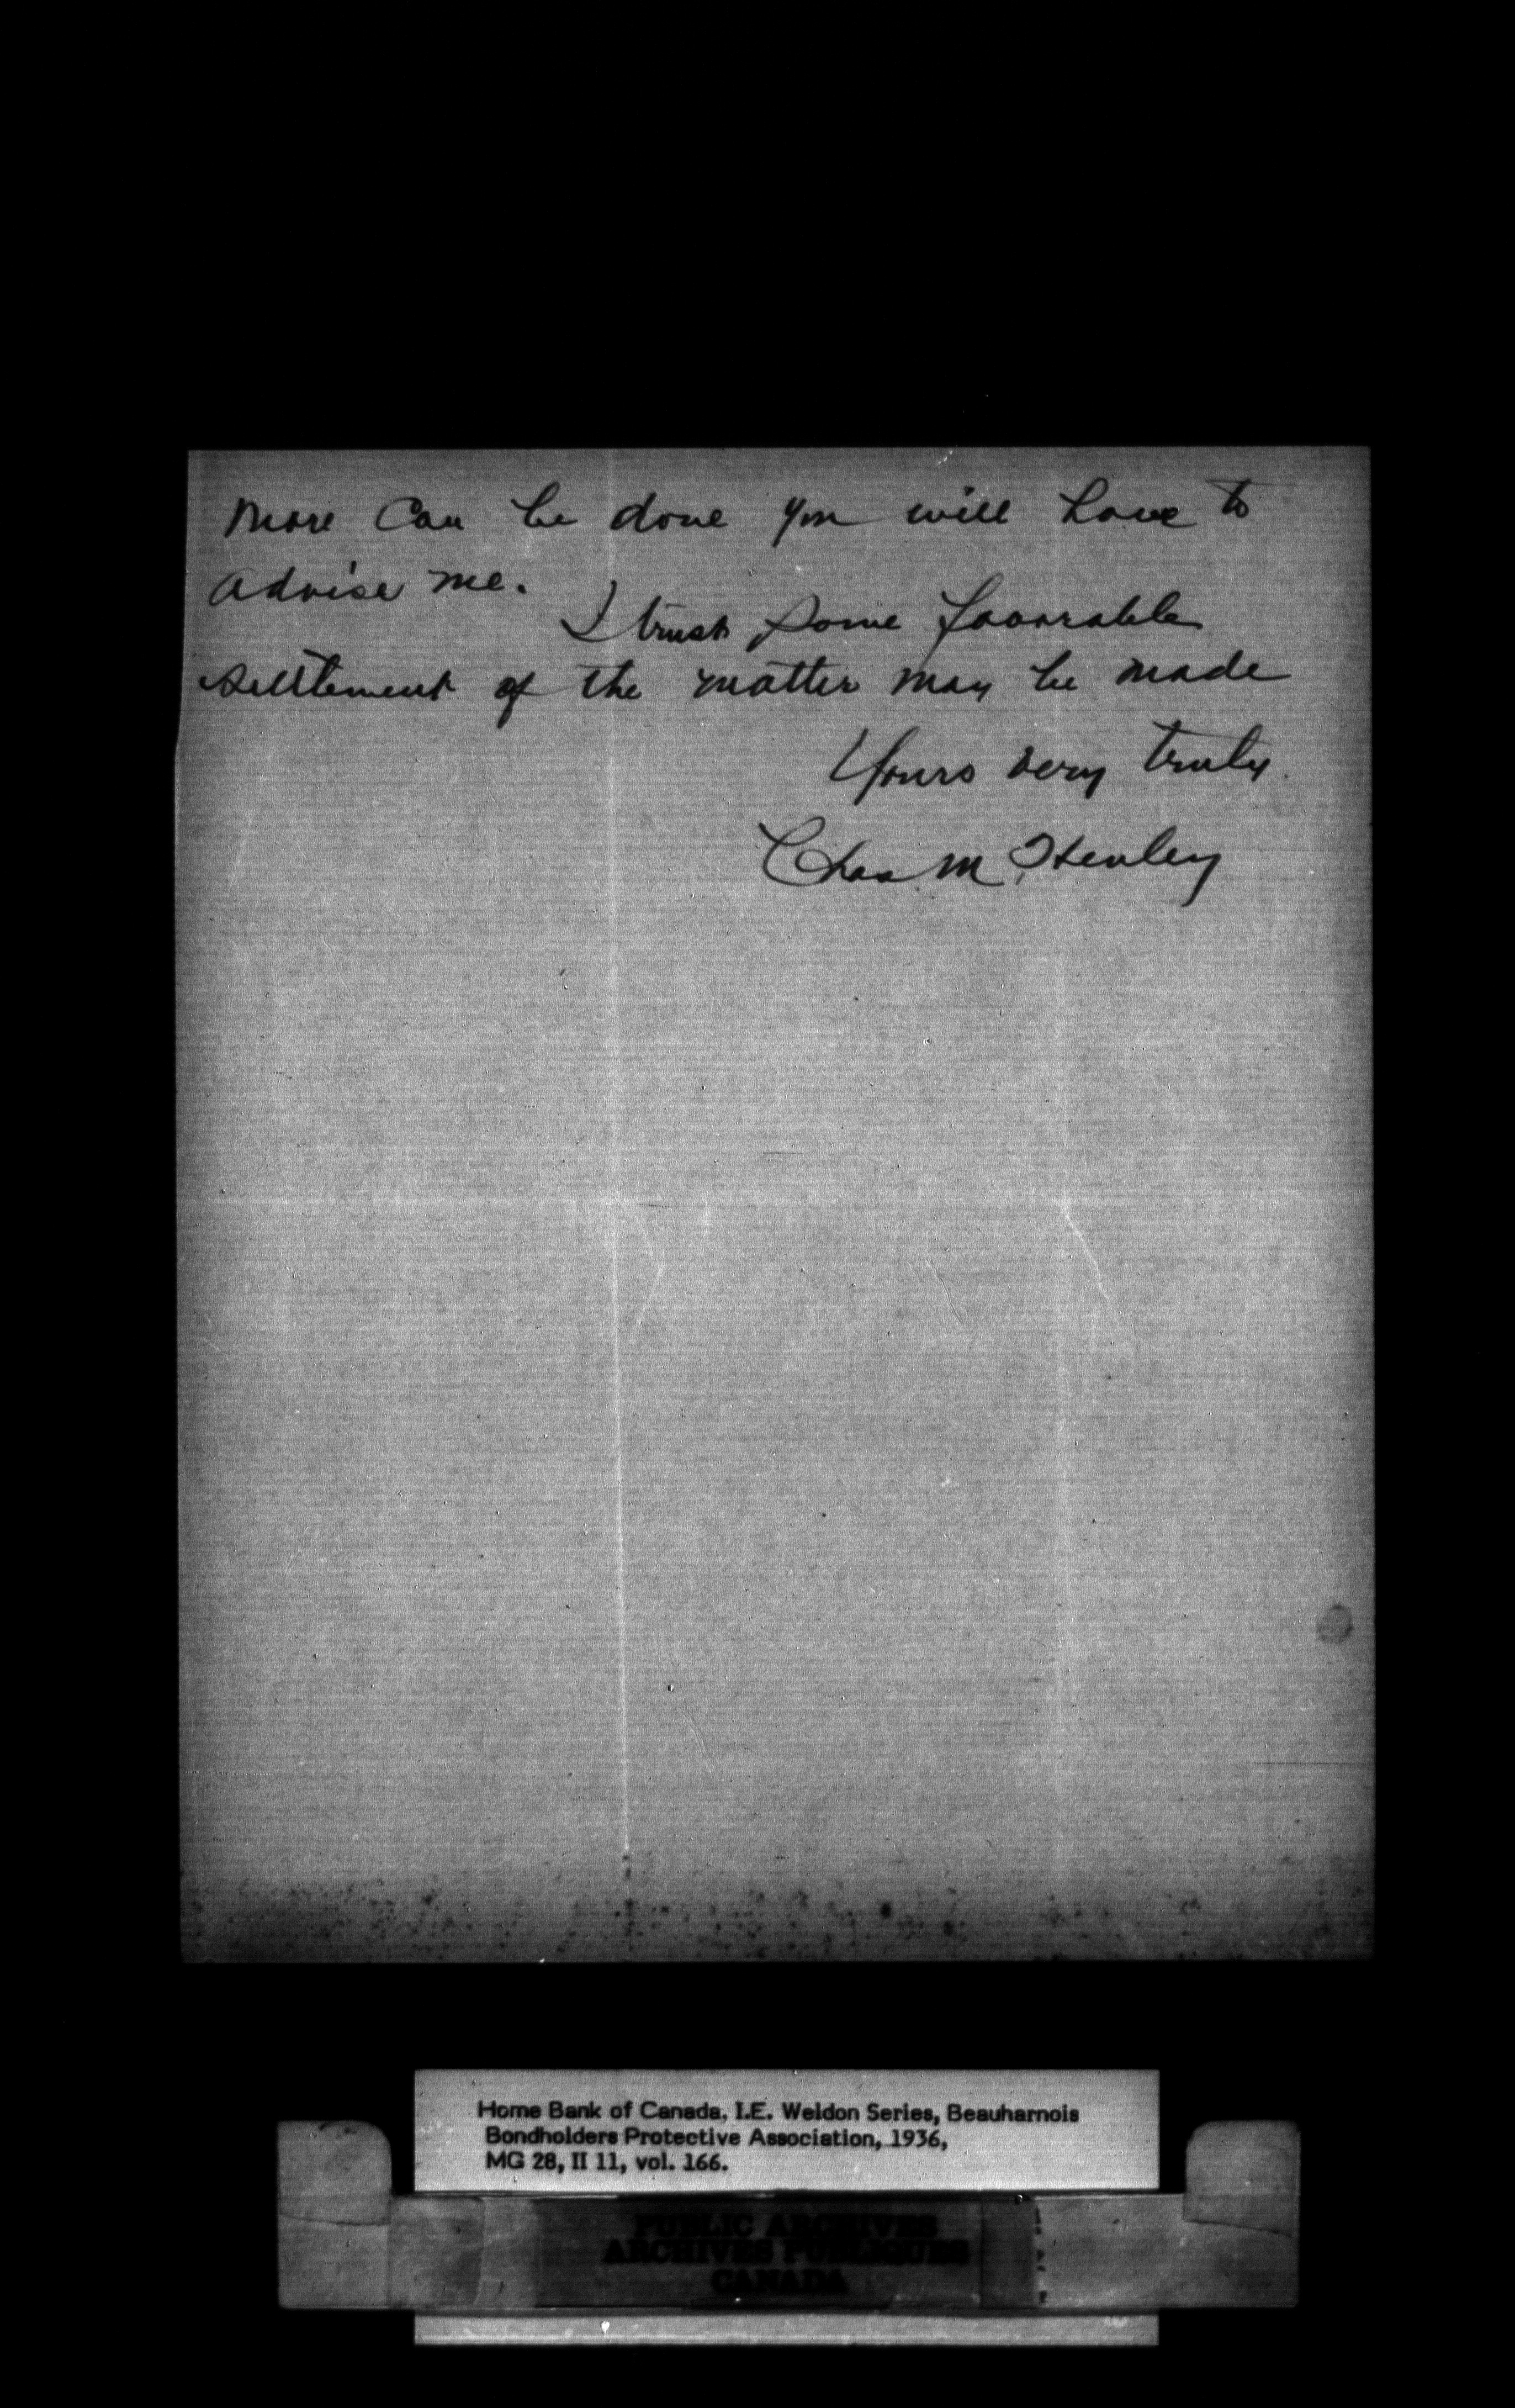 more can be done you will have to
advise me.
I trust some favorable
settlement of the matter may be made
Yours very truly.
Chas. M. Henley
Home Bank of Canada, I.E. Weldon Series, Beauharnois
Bondholders Protective Association, 1936,
MG 28, II 11, vol. 166.
PUBLIC ARCHIVES
ARCHIVES PUBLIQUES
CANADA